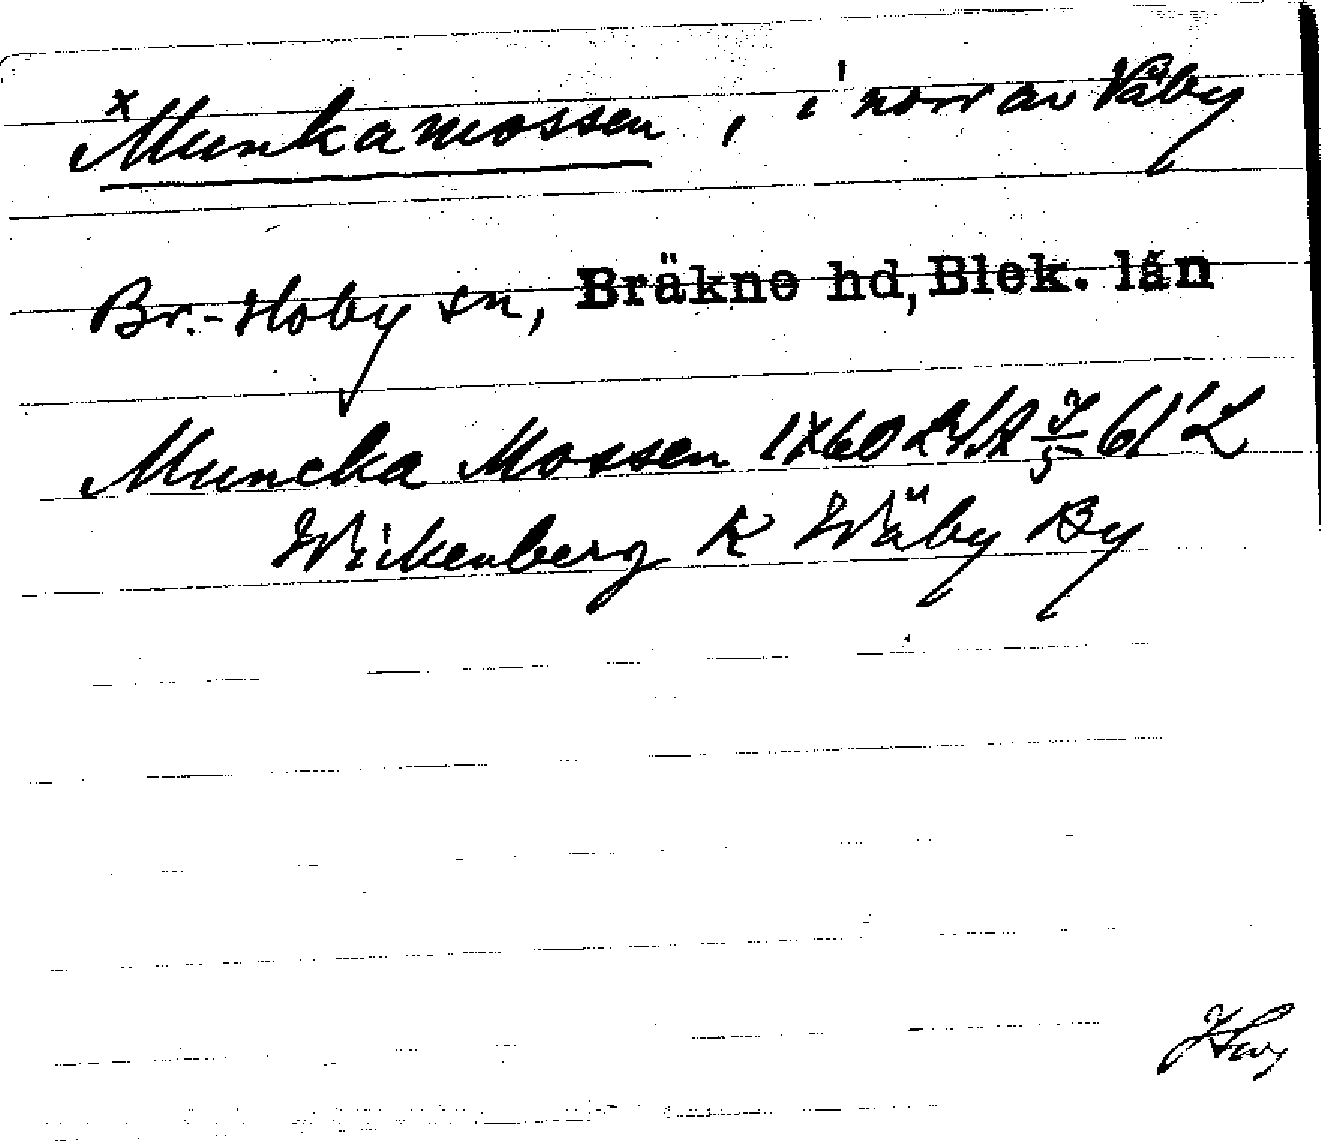 x Munkamossen, i norr av Väby
Br.-Hoby sn, Bräkne hd, Blek. län
Muncka Mossen 1860 61 L
Wickenberg K Wäby By